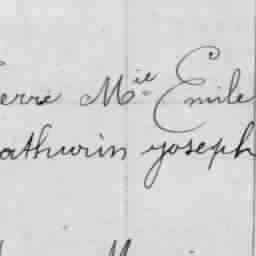 erre Mie Emile
athurin Joseph